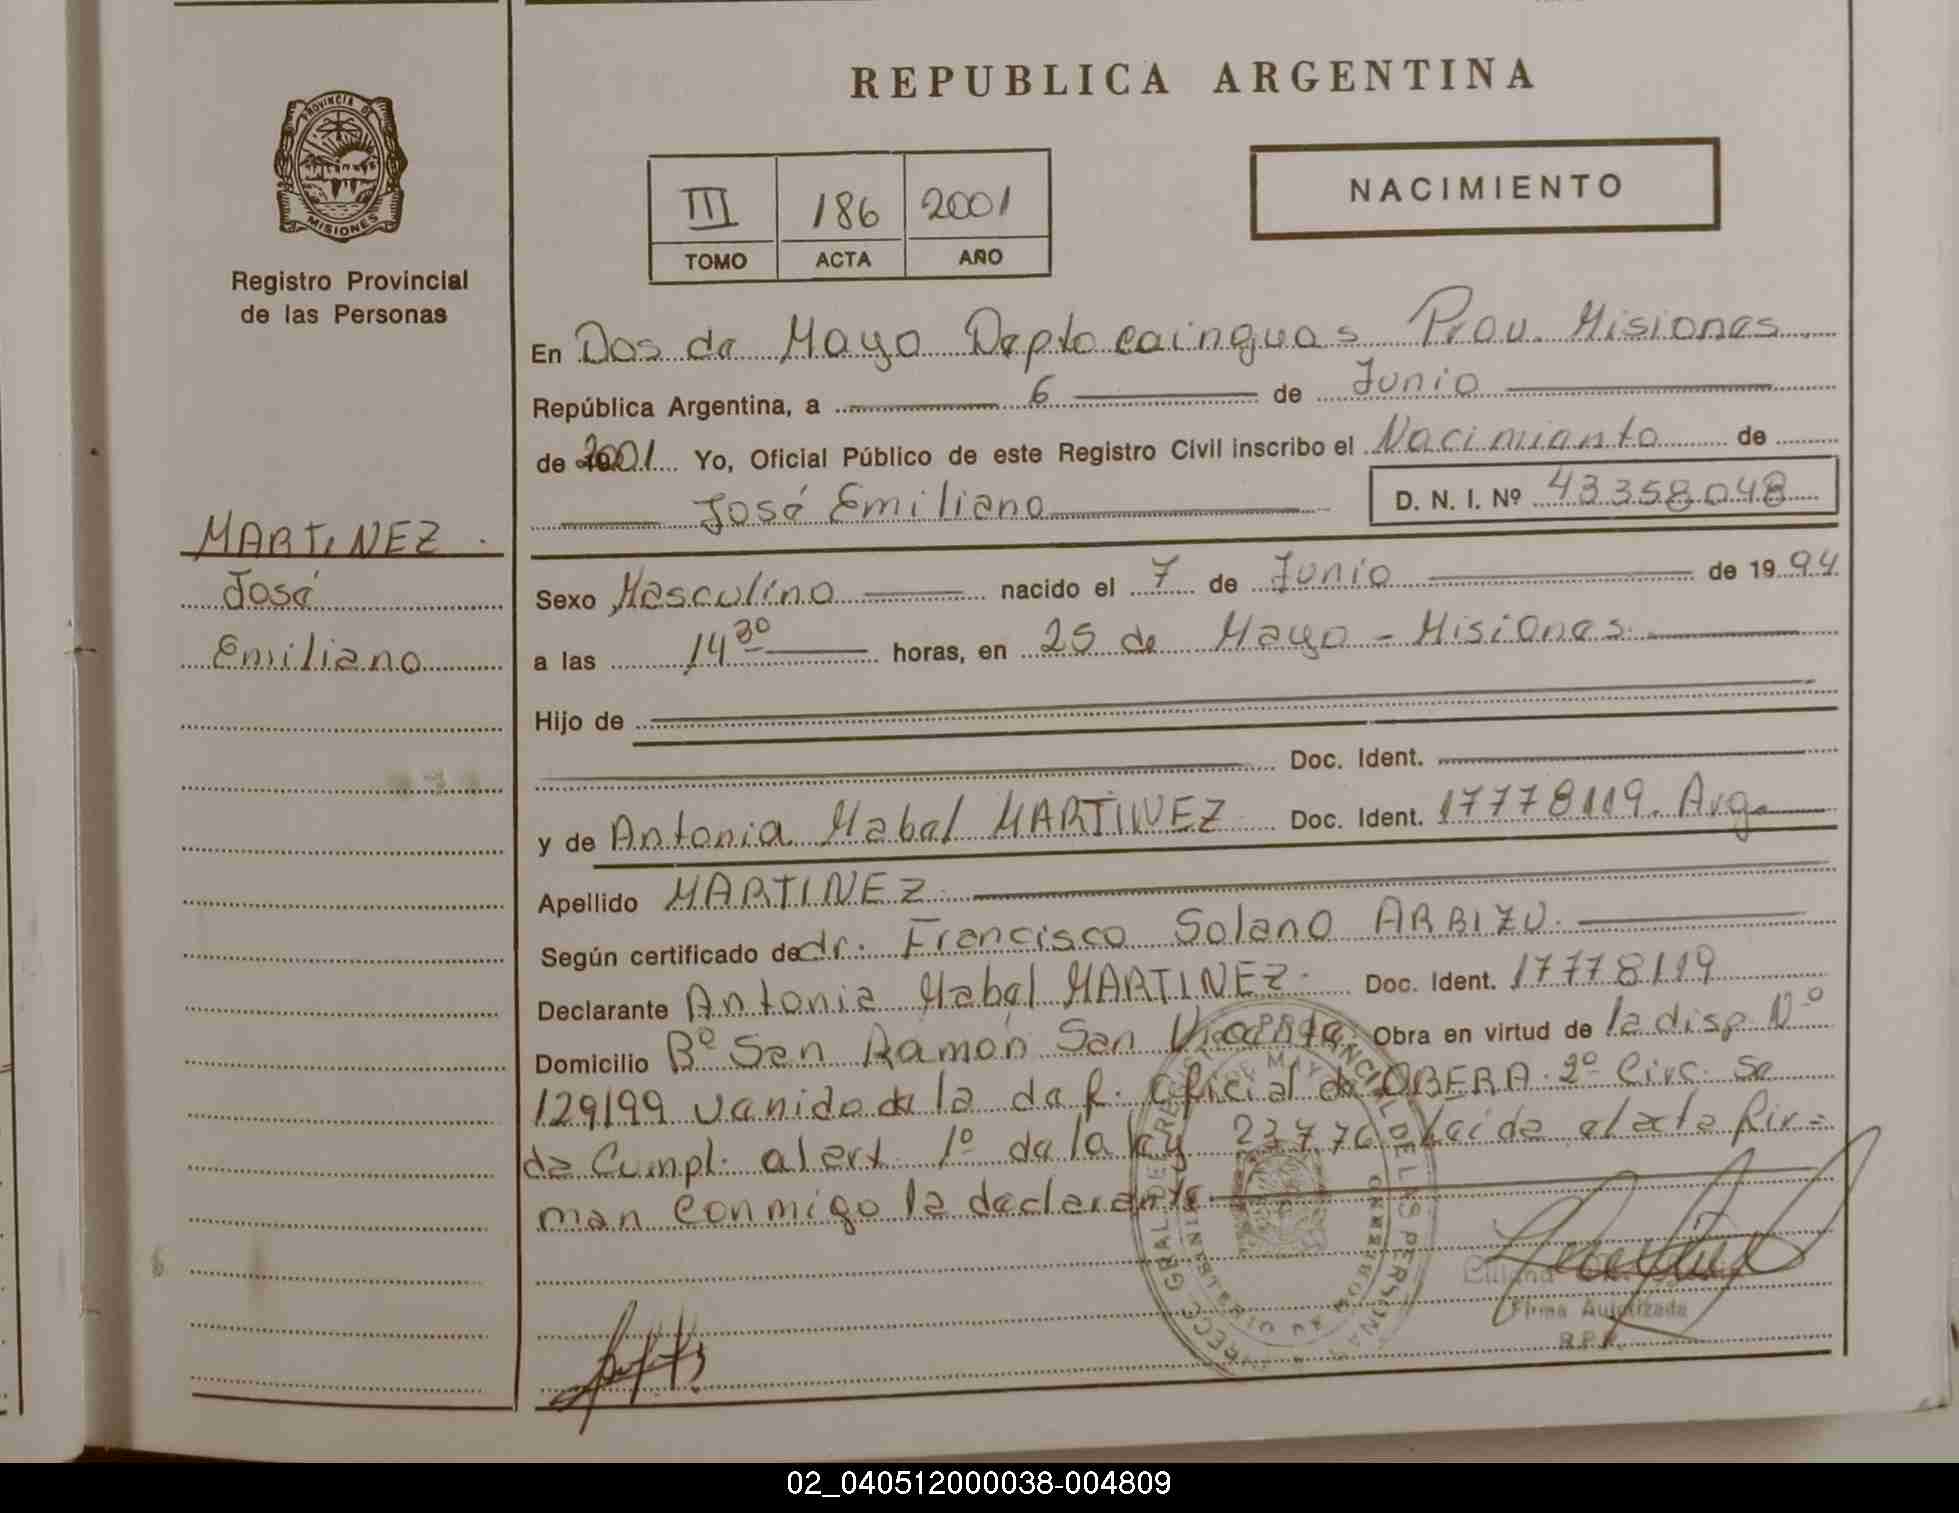 REPUBLICA ARGENTINA
PROVINCIA DE
MISIONES
Registro Provincial
de las Personas
III 186 2001
TOMO ACTA AÑO
NACIMIENTO
En Dos de Mayo Depto cainguas Prov. Misiones
República Argentina, a 6 de Junio
de 2001 Yo, Oficial Público de este Registro Civil inscribo el Nacimiento de
José Emiliano D. N. I. Nº 43358048
MARTINEZ
José
Emiliano
Sexo Masculino nacido el 7 de Junio de 1994
a las 14 30 horas, en 25 de Mayo - Misiones
Hijo de
Doc. Ident.
y de Antonia Mabel MARTINEZ Doc. Ident. 17778119. Arg.
Apellido MARTINEZ
Según certificado de dr. Francisco Solano ARBIZU
Declarante Antonia Mabel MARTINEZ Doc. Ident. 17778119
Domicilio Bº San Ramón San Obra en virtud de la disp Nº
129/99 venido de la de f. oficial de OBERA. 2º Circ. Se
da Cumpl. al art 1º de la ley Leida el acta fir=
man conmigo la declarante
Firma Autorizada
R.P.P.
02_040512000038-004809